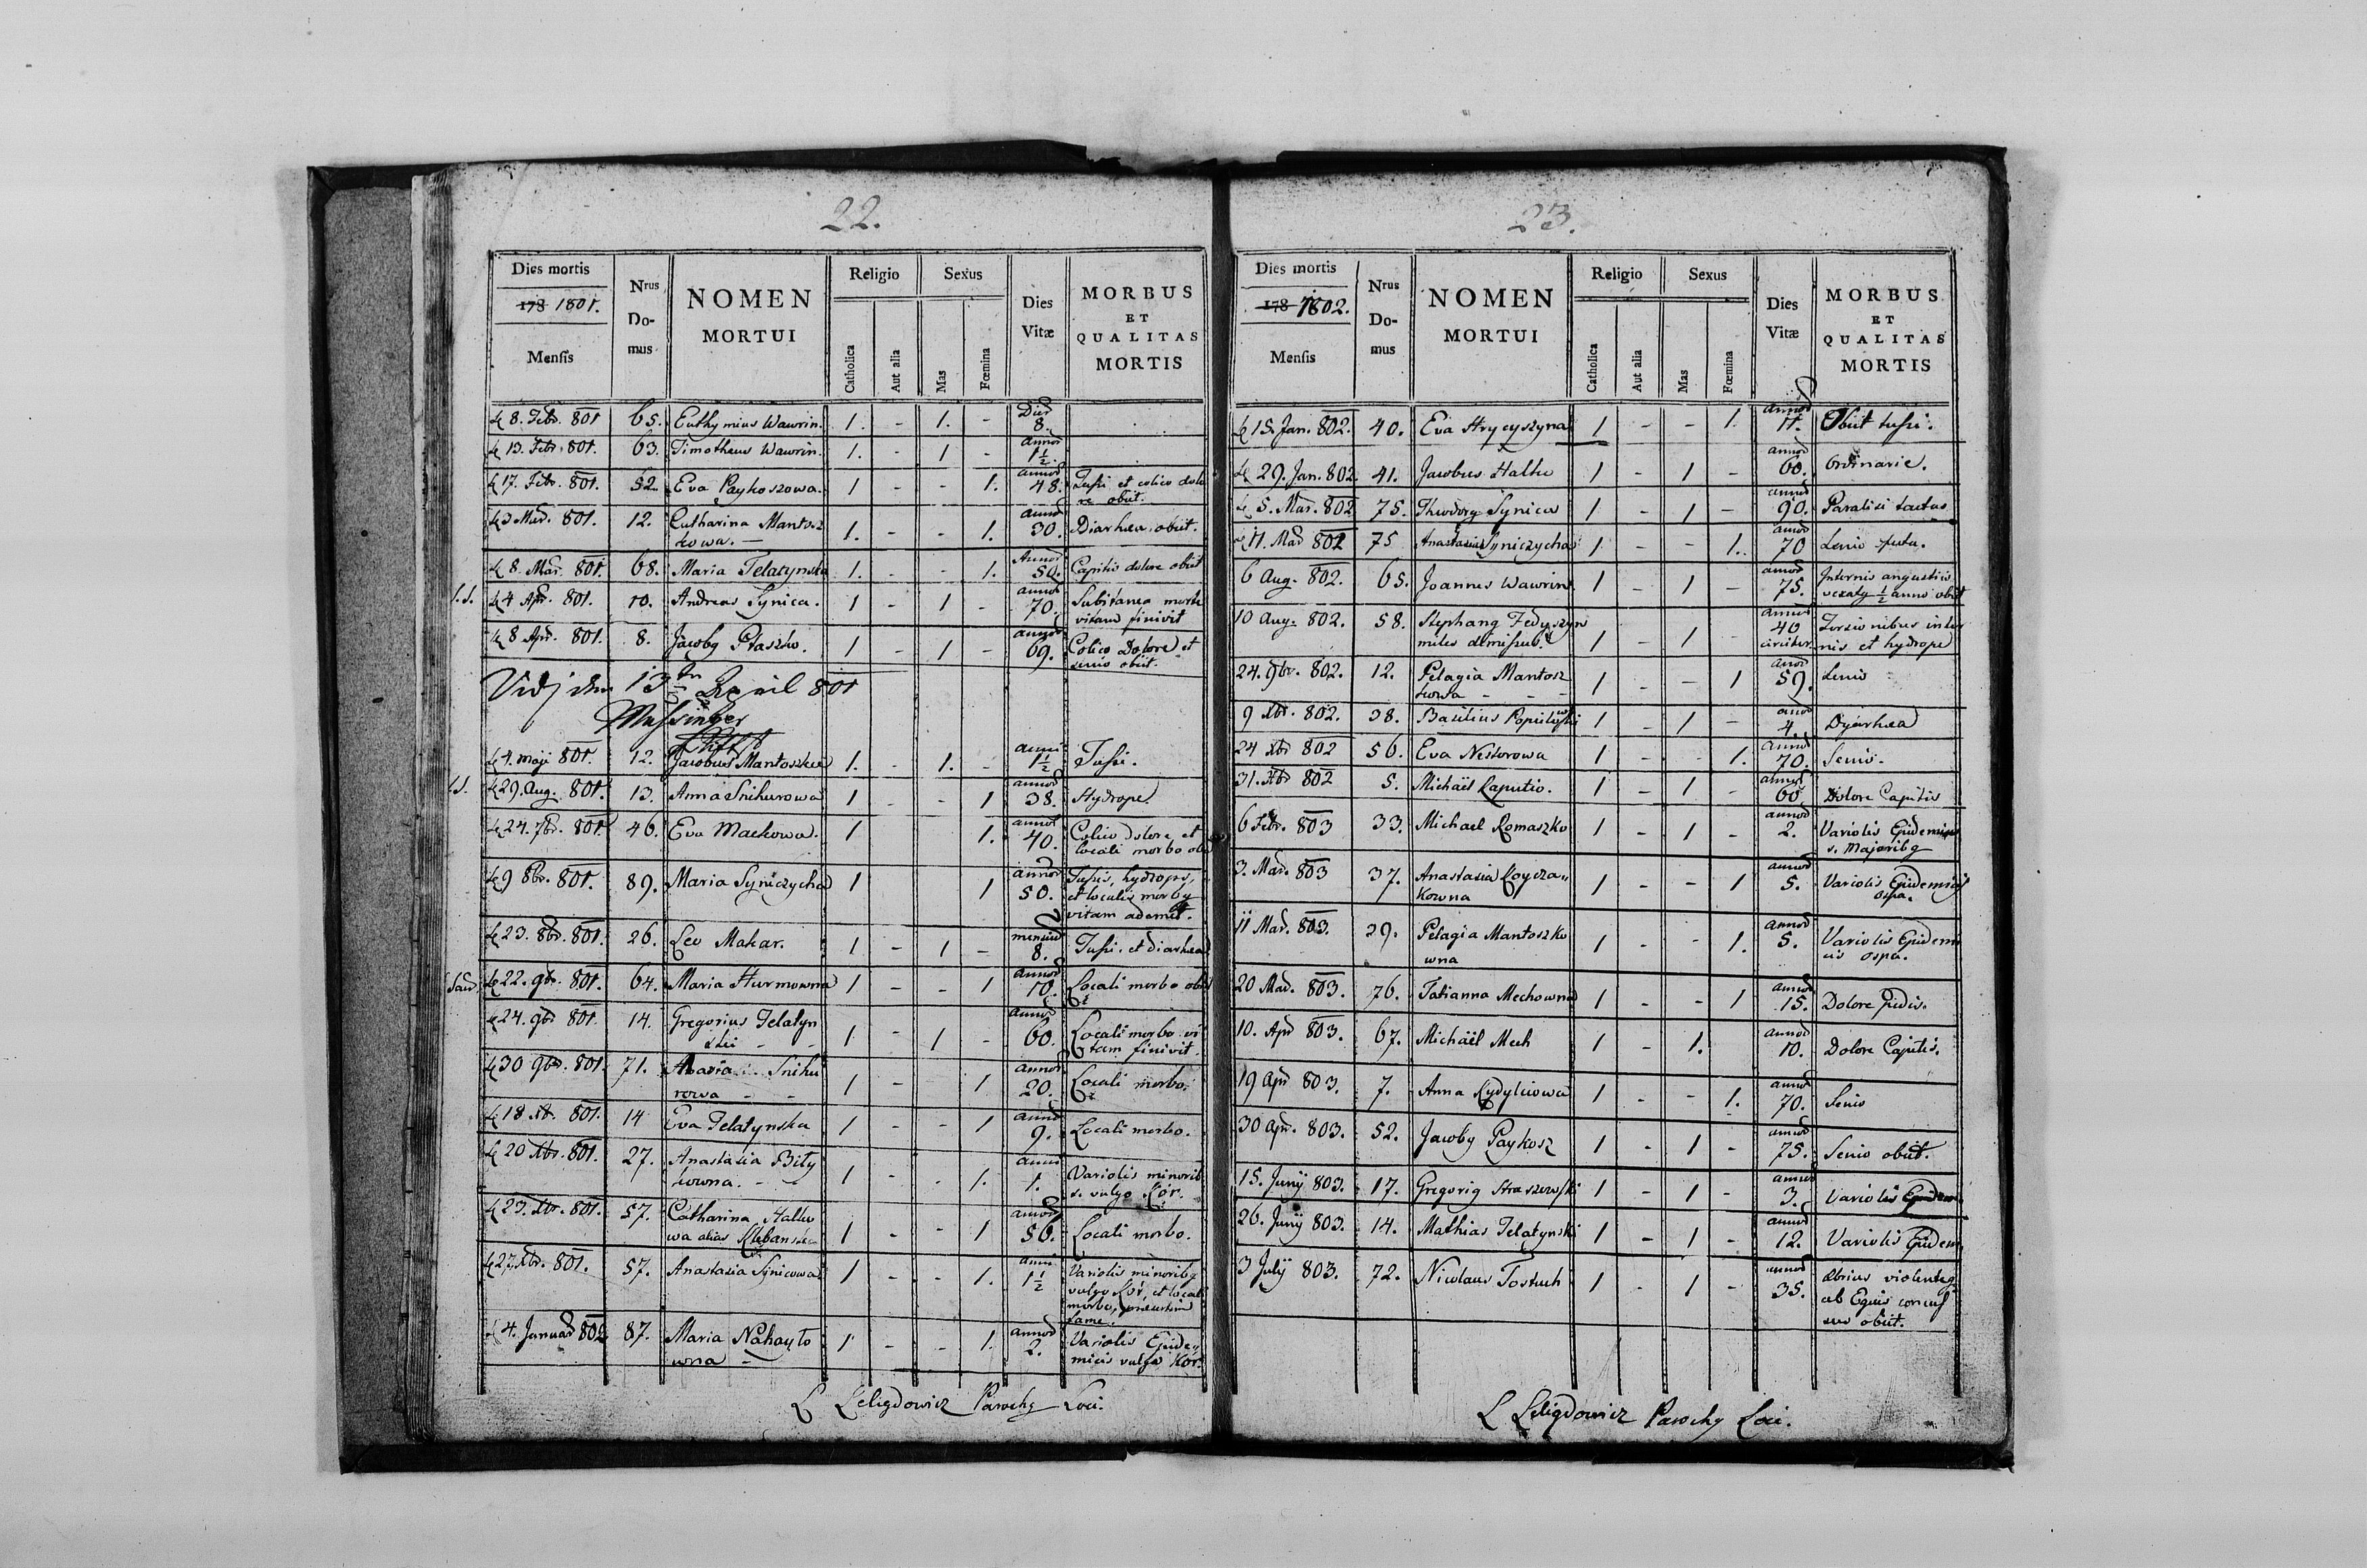 22.
Dies mortis
178 1801.
Mensis
Nrus Do- mus
NOMEN MORTUI
Religio
Catholica
Aut alia
Sexus
Mas
Fœmina
Dies Vitæ
MORBUS ET QUALITAS MORTIS
8. Febr. 801 65. Euthymius Wawrin. 1. - 1. - Dies 8.
13. Febr. 801. 63. Timotheus Wawrin. 1. - 1 - annor 1 1/2.
17. Febr. 801. 52. Eva Paykoszowa. 1 - - 1. annor 48. Tussi et colico dolo
re obiit.
3 Mar. 801. 12. Catharina Mantosz 1. - - 1. annor 30. Diarhæa obiit.
kowa. -
8. Mar. 801. 68. Maria Telatynska 1. - - 1. Annor 50. Capitis dolore obiit
4 Apr. 801. 10. Andreas Synica. 1 - 1 - annor 70. Subitanea morte
vitam finivit
8 Apr. 801. 8. Jacobg Ptaszko. 1 - 1 - annor 69. Colico Dolore et
senio obiit.
Vidj den 13ten April 801
4. maji 801. 12. Jacobus Mantoszkie 1. - 1. - anni 1 1/2 Tussi.
29. Aug. 801. 13. Anna Snihurowa 1 - - 1 annor 38. Hydrope.
24. 7br. 801. 46. Eva Mackowa. 1 1. annor 40. Colico dolore et
locali morbo obiit
9 8br. 801. 89. Maria Syniczycha 1 1 annor 50. Tussis, hydrops,
et localis morbg
vitam ademit.
23. 8br. 801. 26. Leo Makar. 1 - 1 - mensium 8. Tussi. et diarhæa
22. 9br. 801. 64. Maria Hurmowna 1 - - 1 annor 10. Locali morbo obiit
24. 9br 801. 14. Gregorius Telatyn 1 - 1 - annor 60. Locali morbo vi
ski - - tam finivit.
30 9br. 801. 71. Maria Snihu 1 - 1 annor 20. Locali morbo.
rowa - -
18 Xb. 801. 14 Eva Telatynska 1 - - 1 annor 9. Locali morbo.
20 Xbr. 801. 27. Anastasia Bily 1 - - 1. anni 1. Variolis minorib
kowna. - s. vulgo Kor.
23. Xbr. 801. 57. Catharina Halko 1 - - 1 annor 56. Locali morbo.
wa alias
27. Xbr. 801. 57. Anastasia Synicowa 1 - - 1. anni 1 1/2 Variolis minoribg
vulgo Kor, et locali
morbo,
fame.
4. Januar 802 87. Maria Nahayto 1 - - 1. annor 2. Variolis Epide
wna - micis vulgo Kor.
L Leligdowicz Parochg Loci.
23.
Dies mortis
178 1802.
Mensis
Nrus Do- mus
NOMEN MORTUI
Religio
Catholica
Aut alia
Sexus
Mas
Fœmina
Dies Vitæ
MORBUS ET QUALITAS MORTIS
15. Jan. 802. 40. Eva Hrycyszyna 1 - - 1. annor 11. Obiit tussi.
29. Jan. 802 41. Jacobus Halko 1 - 1 - annor 60. Ordinarie.
5. Mar. 802 75. Theodorg Synica 1 - 1 - annor 90. Paralisi tactus
11. Mar 802 75 Anastasia Syniczycha 1 - - 1. annor 70 Senio
6 Aug. 802. 65. Joannes Wawrin 1 - 1 - annor 75. Internis angustiis
vexatg 1/2 anno obiit
10 Aug. 802. 58. Stephang Fedyszyn 1 - 1 annor 40 Torsionibus inter
miles dimissus. circiter nis et hydrope
24. 9br. 802. 12. Pelagia Mantosz 1 - - 1 annor 59. Senio
kowa - - -
9 Xbr. 802. 38. Basilius 1 - 1 - annor 4. Dyarhæa
24 Xbr 802 56. Eva Nestorowa 1 - - 1. annor 70. Senio.
31. Xbr 802 5. Michaël Caputio. 1 - 1 - annor 60 Dolore Capitis
6 Febr. 803 33. Michael Romaszko 1 - 1 - annor 2. Variolis Epidemicis
s. Majoribg
3. Mar. 803 37. Anastasia Koycza- 1 - - 1 annor 5. Variolis Epidemicis
kowna ospa.
11 Mar. 803. 29. Pelagia Mantoszko 1 - - 1. annor 5. Variolis Epidemi
wna cis ospa.
20 Mar. 803. 76. Tatianna Mechowna 1 - - 1 annor 15. Dolore pedis.
10. Apr 803. 67. Michäel Mech 1 - 1. annor 10. Dolore Capitis.
19 Apr 803. 7. Anna 1 - - 1. annor 70. Senio
30 Apr. 803. 52. Jacobg Paykosz 1 - 1 - annor 75. Senio obiit.
15. Junij 803. 17. Gregorig Straszewski 1 - 1 - annor 3. Variolis Epidem
26. Junij 803. 14. Mathias Telatynski 1 - 1 - annor 12. Variolis Epidem
3 Julij 803. 72. Nicolaus Tostuch 1 - 1 - annor 35. Ebrius violenteg
ab Equis concus
sus obiit.
L Leligdowicz Parochg Loci.